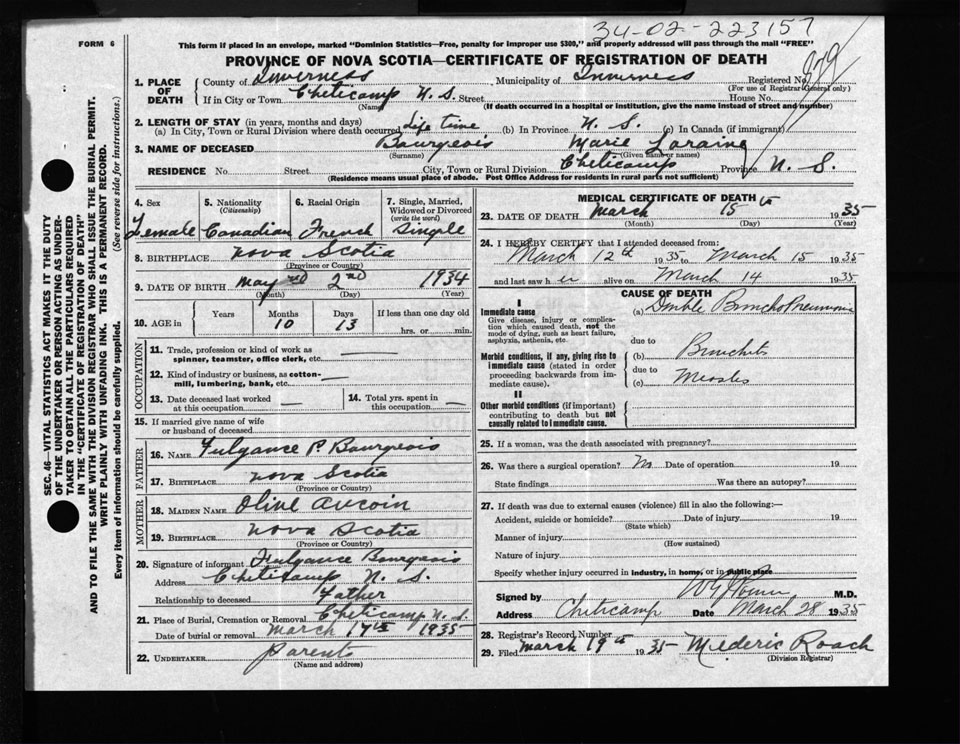 34-02-223157
FORM 6
This form if placed in an envelope, marked "Dominion Statistics—Free, penalty for improper use $300," and properly addressed will pass through the mail "FREE"
PROVINCE OF NOVA SCOTIA—CERTIFICATE OF REGISTRATION OF DEATH
1. PLACE OF DEATH County of Inverness Municipality of Inverness Registered No.
(For use of Registrar General only)
If in City or Town Cheticamp N. S. Street House No.
(Name) (If death occurred in a hospital or institution, give the name instead of street and number)
2. LENGTH OF STAY (in years, months and days)
(a) In City, Town or Rural Division where death occurred Life time (b) In Province N. S. (c) In Canada (if immigrant)
3. NAME OF DECEASED Bourgeois Marie Loraine
(Surname) (Given name or names)
RESIDENCE No. Street City, Town or Rural Division Cheticamp Province N. S.
(Residence means usual place of abode. Post Office Address for residents in rural parts not sufficient)
4. Sex Female
5. Nationality (Citizenship) Canadian
6. Racial Origin French
7. Single, Married, Widowed or Divorced (write the word) Single
8. BIRTHPLACE Nova Scotia
(Province or Country)
9. DATE OF BIRTH May 2nd 1934
(Month) (Day) (Year)
10. AGE in Years Months 10 Days 13 If less than one day old hrs. or min.
OCCUPATION
11. Trade, profession or kind of work as spinner, teamster, office clerk, etc.
12. Kind of industry or business, as cotton-mill, lumbering, bank, etc.
13. Date deceased last worked at this occupation
14. Total yrs. spent in this occupation
15. If married give name of wife or husband of deceased
FATHER
16. NAME Fulgance P. Bourgeois
17. BIRTHPLACE Nova Scotia
(Province or Country)
MOTHER
18. MAIDEN NAME Olive Aucoin
19. BIRTHPLACE Nova Scotia
(Province or Country)
20. Signature of informant Fulgance Bourgeois
Address Cheticamp N. S.
Relationship to deceased Father
21. Place of Burial, Cremation or Removal Cheticamp N. S.
Date of burial or removal March 17th 1935
22. UNDERTAKER Parents
(Name and address)
MEDICAL CERTIFICATE OF DEATH
23. DATE OF DEATH March 15th 1935
(Month) (Day) (Year)
24. I HEREBY CERTIFY that I attended deceased from:
March 12th 1935 to March 15 1935
and last saw her alive on March 14 1935
CAUSE OF DEATH
I
Immediate cause (a) Double BronchoPneumonia
Give disease, injury or complication which caused death, not the mode of dying, such as heart failure, asphyxia, asthenia, etc.
due to
Morbid conditions, if any, giving rise to immediate cause (stated in order proceeding backwards from immediate cause).
(b) Bronchitis
due to
(c) Measles
II
Other morbid conditions (if important) contributing to death but not causally related to immediate cause.
25. If a woman, was the death associated with pregnancy?
26. Was there a surgical operation? No Date of operation 19
State findings Was there an autopsy?
27. If death was due to external causes (violence) fill in also the following:—
Accident, suicide or homicide? Date of injury 19
(State which)
Manner of injury
(How sustained)
Nature of injury
Specify whether injury occurred in industry, in home, or in public place
Signed by M.D.
Address Cheticamp Date March 28 1935
28. Registrar's Record Number
29. Filed March 19th 1935 Mederic Roach
(Division Registrar)
SEC. 46—VITAL STATISTICS ACT MAKES IT THE DUTY
OF THE UNDERTAKER OR PERSON ACTING AS UNDER-
TAKER TO OBTAIN ALL THE PARTICULARS REQUIRED
IN THE "CERTIFICATE OF REGISTRATION OF DEATH"
AND TO FILE THE SAME WITH THE DIVISION REGISTRAR WHO SHALL ISSUE THE BURIAL PERMIT.
WRITE PLAINLY WITH UNFADING INK. THIS IS A PERMANENT RECORD.
Every item of information should be carefully supplied. (See reverse side for instructions.)